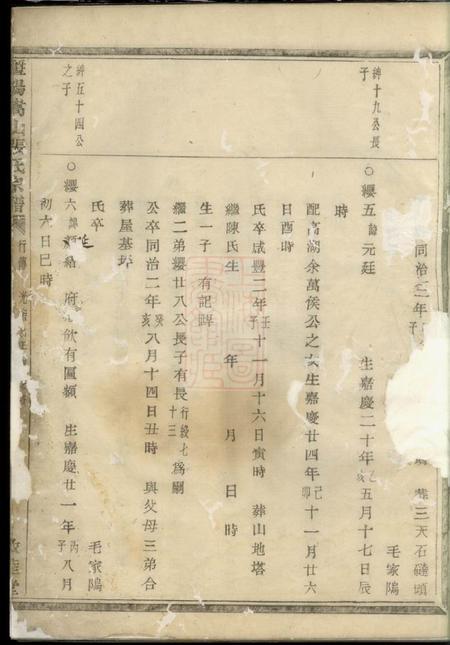 同治二年 子 葬三天石碴頭
毛家隝
紳十九公長子
○纓五 諭元廷 生嘉慶二十年乙亥五月十七日辰
時
配高湖余萬俟公之女生嘉慶廿四年己卯十一月廿六
日酉時
氏卒咸豐二年壬子十一月十六日寅時 葬山地塔
繼陳氏生 年 月 日 時
生一子 有記
繼二弟纓廿八公長子有長行綬七十三為嗣
公卒同治二年癸亥八月十四日丑時 與父母三弟合
葬屋基坪
氏卒 毛家隝
紳五十四公之子
○纓六 給 府 歆有匾額 生嘉慶廿一年丙子八月
初六日巳時
暨陽嵩山張氏宗譜
行傳
堂